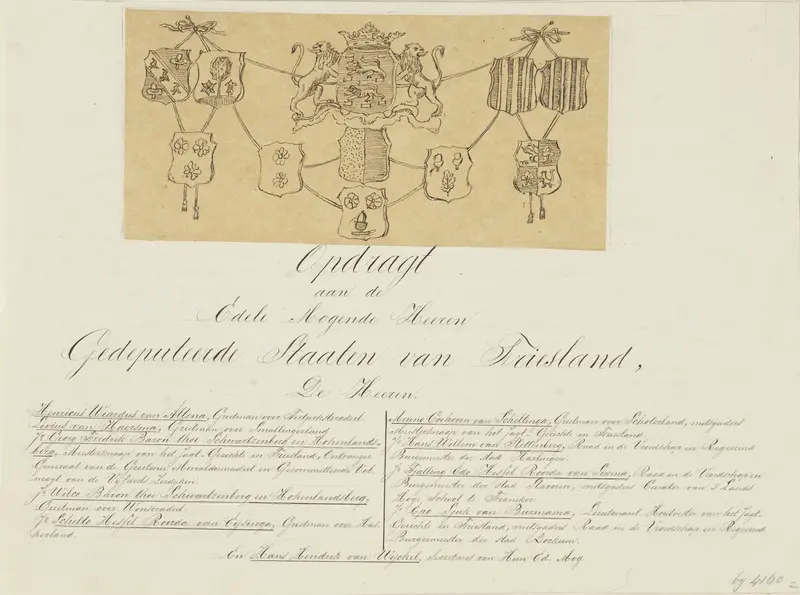 Opdragt
aan de
Edele Mogende Heeren
Gedeputeerde Staaten van Friesland,
De Heeren.
Henricus Wiardus van Altena, Grietman over
Livius van Haersma, Grietman over Smallingerland
Jr. Georg Frederik Baron thoe Schwartzenberg en Hohenlands-
berg, Meesterknaap van het Jagt-Gerichte in Friesland, Ontvanger
Generaal van de en Gecommitteerde Vol-
magt van de Vijfdeels Zeedyken.
Jr. Wilco Baron thoe Schwartzenberg en Hohenlandsberg,
Grietman over Wonseradeel
Jr. Schelto Hessel Roorda van Eysinga, Grietman over Has-
kerland.
van Scheltinga, Grietman over Schoterland, mitsgaders
Meesterknaap van het Jagt-Gerichte in Friesland
Jr. Hans Willem van Plettenberg, Raad in de Vroedschap en Regeerend
Burgemeester der Stad Harlingen.
Jr. Tjalling Edo Hessel Roorda van Sixma, Raad in de Vroedschap en
Burgemeester der Stad Staveren, mitsgaders Curator van 's Lands
Hoge School te Franeker
Jr. Sjuk van Burmania, Lieutenant Houtvester van het Jagt-
Gerichte in Friesland, mitsgaders Raad in de Vroedschap en Regeerend
Burgemeester der Stad Dockum.
En Hans Hendrik van Wyckel, Secretaris van Hun Ed. Mog.
bij 4160